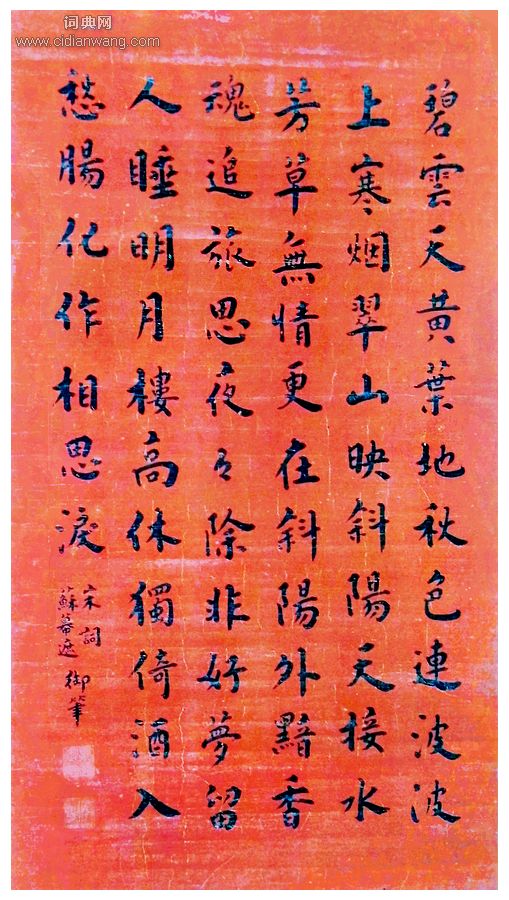 词典网
www.cidianwang.com
碧雲天黄葉地秋色連波波
上寒烟翠山映斜陽天接水
芳草無情更在斜陽外黯香
魂追旅思夜々除非好夢留
人睡明月樓高休獨倚酒入
愁腸化作相思淚
宋詞
蘇幕遮 御筆